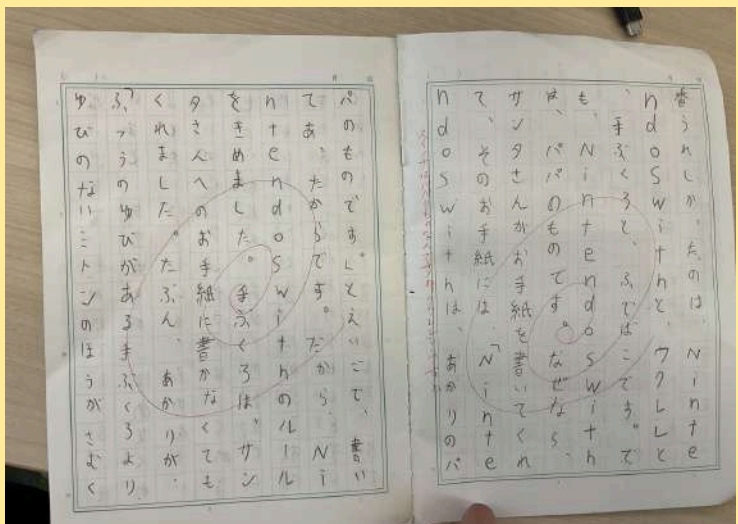 番うれしかったのは、Ninte
ndoSwithと、ウクレレと
、手ぶくろと、ふでばこです。で
も、NintendoSwith
は、パパのものです。なぜなら、
サンタさんがお手紙を書いてくれ
て、そのお手紙には、「Ninte
ndoSwithは、あかりのパ
パのものです。」とえいごで、書い
てあったからです。だから、Ni
ntendoSwithのルール
をきめました。手ぶくろは、サン
タさんへのお手紙に書かなくても
くれました。たぶん、あかりが、
ふつうのゆびがある手ぶくろより
ゆびのないミトンのほうがさむく